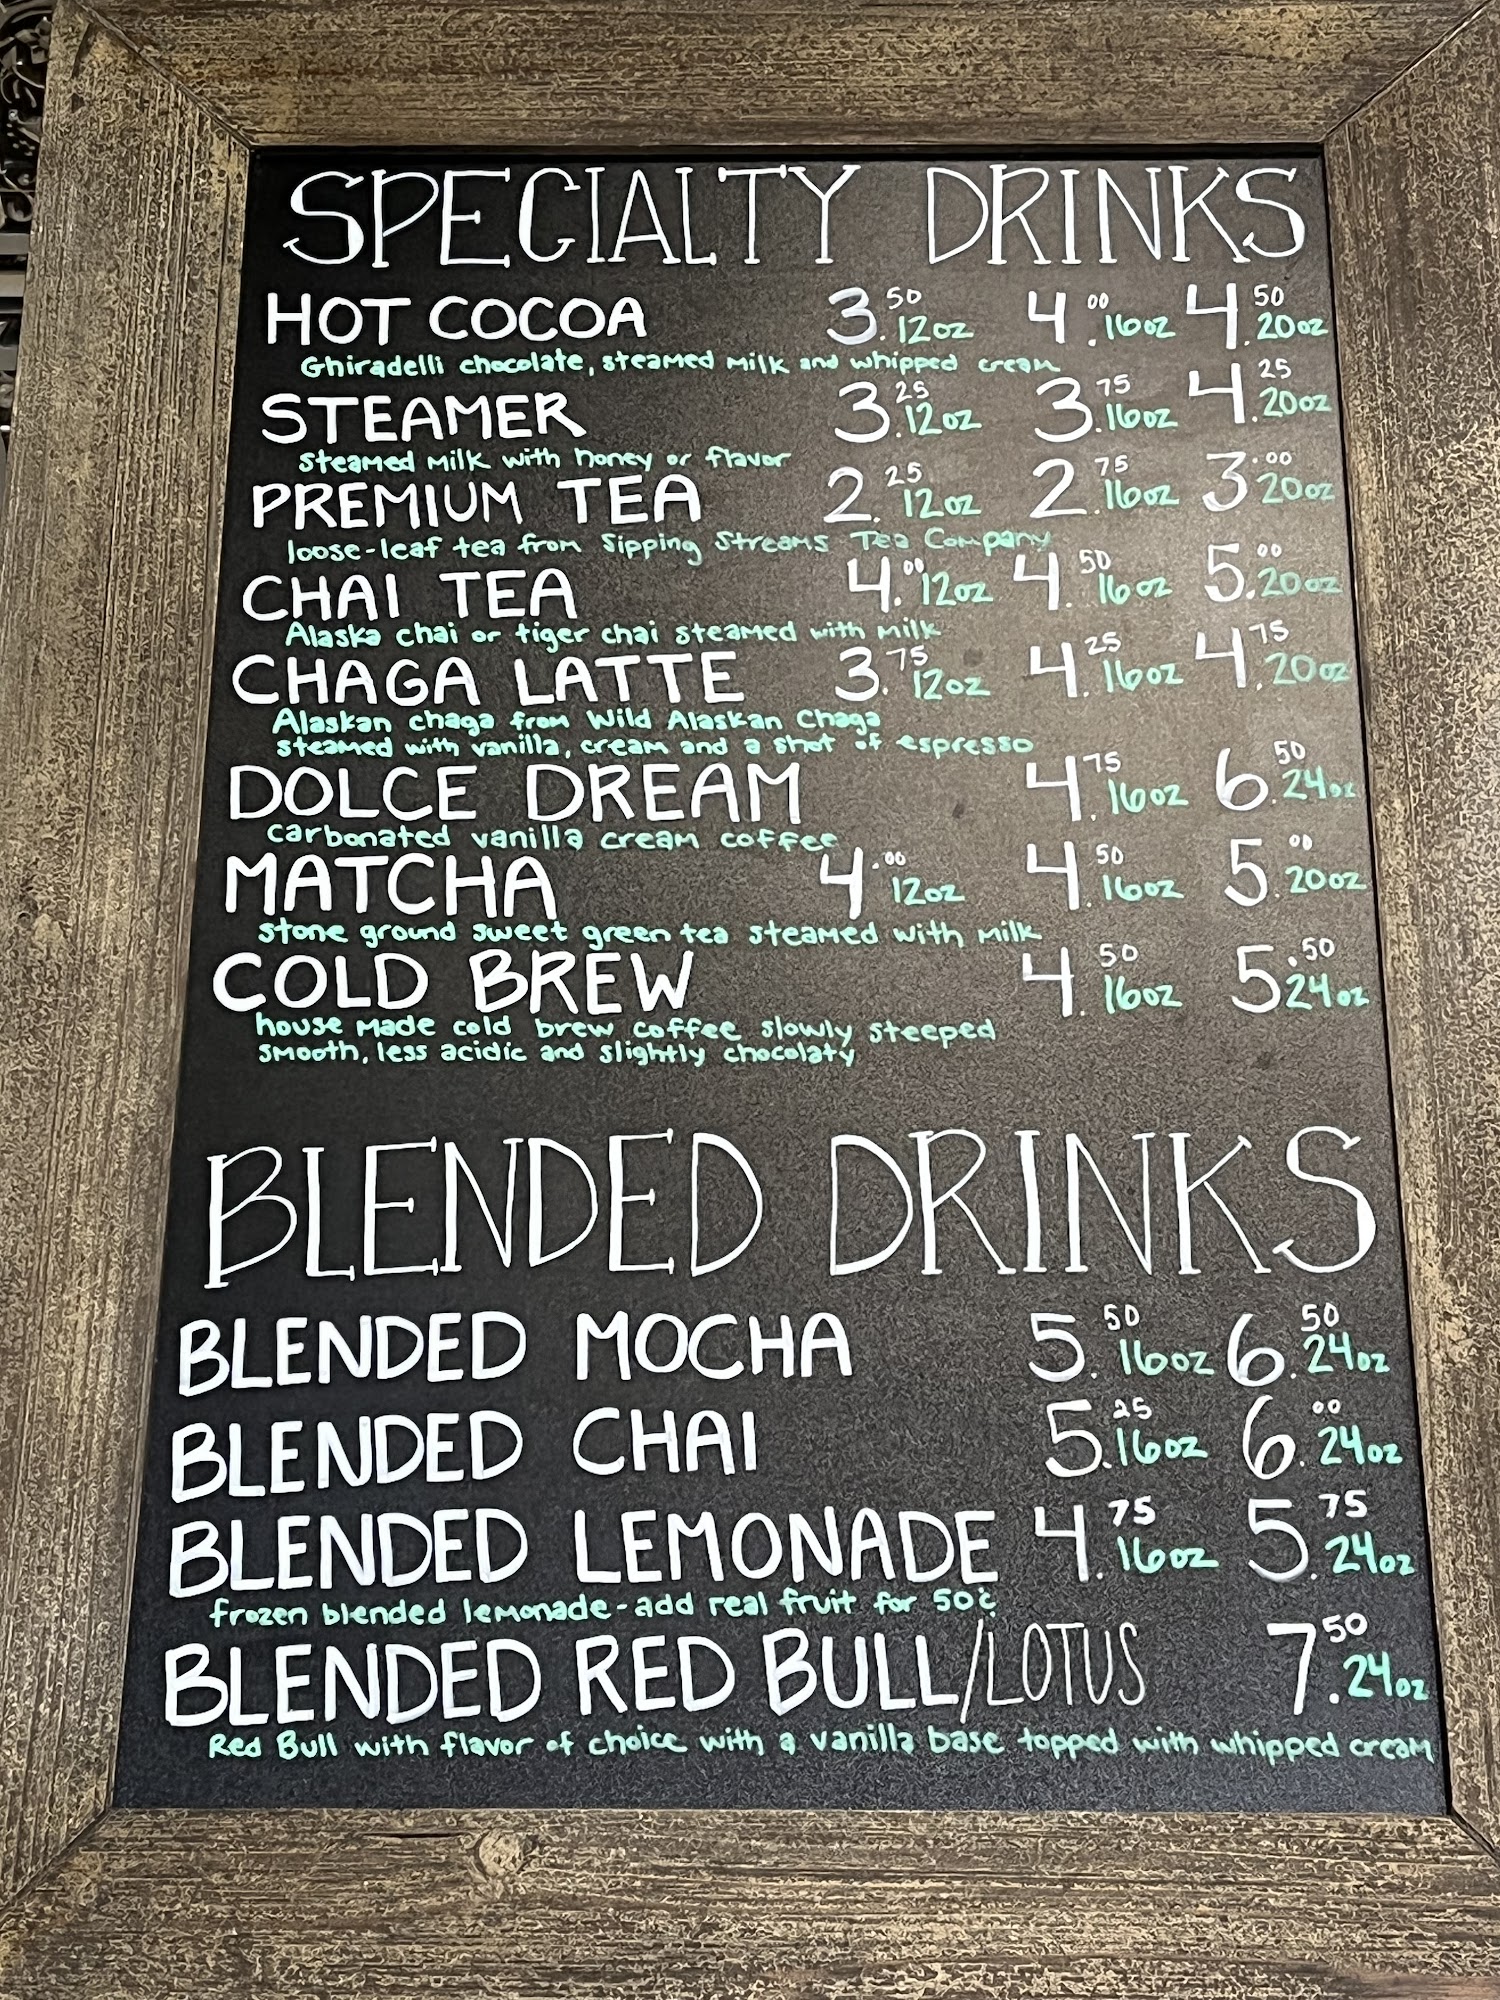 SPECIALTY DRINKS
HOT COCOA 3.50 12oz 4.00 16oz 4.50 20oz
Ghiradelli chocolate, steamed milk and whipped cream
STEAMER 3.25 12oz 3.75 16oz 4.25 20oz
steamed milk with honey or flavor
PREMIUM TEA 2.25 12oz 2.75 16oz 3.00 20oz
loose-leaf tea from Sipping Streams Tea Company
CHAI TEA 4.00 12oz 4.50 16oz 5.00 20oz
Alaska chai or tiger chai steamed with milk
CHAGA LATTE 3.75 12oz 4.25 16oz 4.75 20oz
Alaskan chaga from Wild Alaskan Chaga
steamed with vanilla, cream and a shot of espresso
DOLCE DREAM 4.75 16oz 6.50 24oz
carbonated vanilla cream coffee
MATCHA 4.00 12oz 4.50 16oz 5.00 20oz
stone ground sweet green tea steamed with milk
COLD BREW 4.50 16oz 5.50 24oz
house made cold brew coffee slowly steeped
smooth, less acidic and slightly chocolaty
BLENDED DRINKS
BLENDED MOCHA 5.50 16oz 6.50 24oz
BLENDED CHAI 5.25 16oz 6.00 24oz
BLENDED LEMONADE 4.75 16oz 5.75 24oz
frozen blended lemonade-add real fruit for 50¢
BLENDED RED BULL/LOTUS 7.50 24oz
Red Bull with flavor of choice with a vanilla base topped with whipped cream